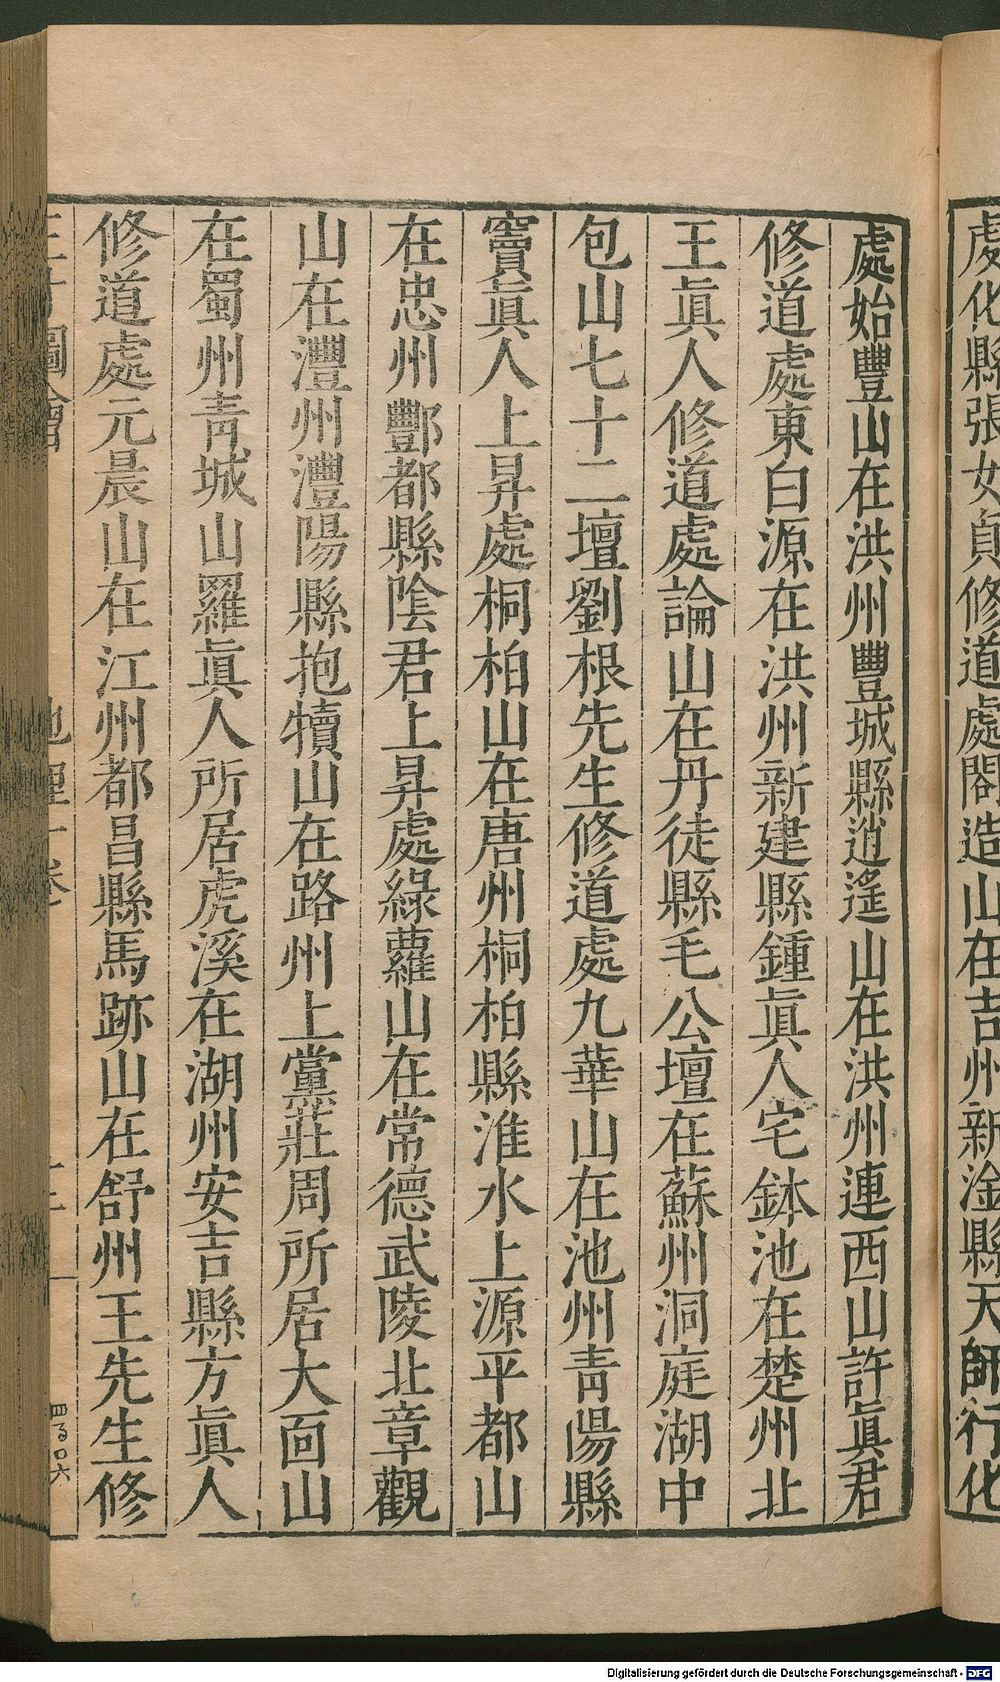 處化縣張女貞修道處閤造山在吉州新淦縣天師行化
處始豐山在洪州豐城縣逍遙山在洪州連西山許眞君
修道處東白源在洪州新建縣鍾眞人宅鉢池在楚州北
王眞人修道處論山在丹徒縣毛公壇在蘇州洞庭湖中
包山七十二壇劉根先生修道處九華山在池州靑陽縣
竇眞人上昇處桐柏山在唐州桐柏縣淮水上源平都山
在忠州酆都縣陰君上昇處綠蘿山在常德武陵北章觀
山在澧州澧陽縣抱犢山在路州上黨莊周所居大面山
在蜀州靑城山羅眞人所居虎溪在湖州安吉縣方眞人
修道處元晨山在江州都昌縣馬跡山在舒州王先生修
三才圖會 地理十卷
Digitalisierung gefördert durch die Deutsche Forschungsgemeinschaft - DFG